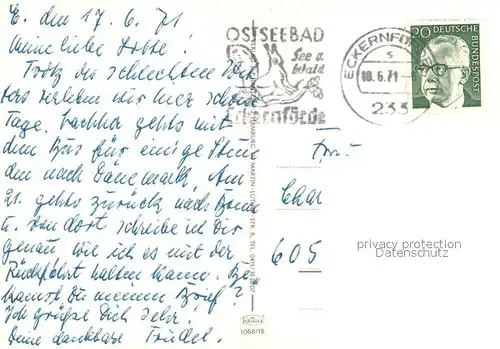 E. den 17. 6. 71
Meine liebe Lotte!
Trotz des schlechten
verleben wir hier schöne
Tage. gehts mit
dem Bus für einige Stun
den nach Dänemark. Am
21. gehts zurück nach Bonn
u. von dort schreibe ich Dir
genau wie ich es mit der
Rückfahrt halten kann. Be
kamst Du meinen Brief?
Ich grüße Dich sehr!
Deine dankbare Trudel.
OSTSEEBAD
See u.
Wald
Eckernförde
ECKERNFÖ
18.6.71
233
20 DEUTSCHE
BUNDESPOST
Frau
Char
605
privacy protection
Datenschutz
KRÜGER